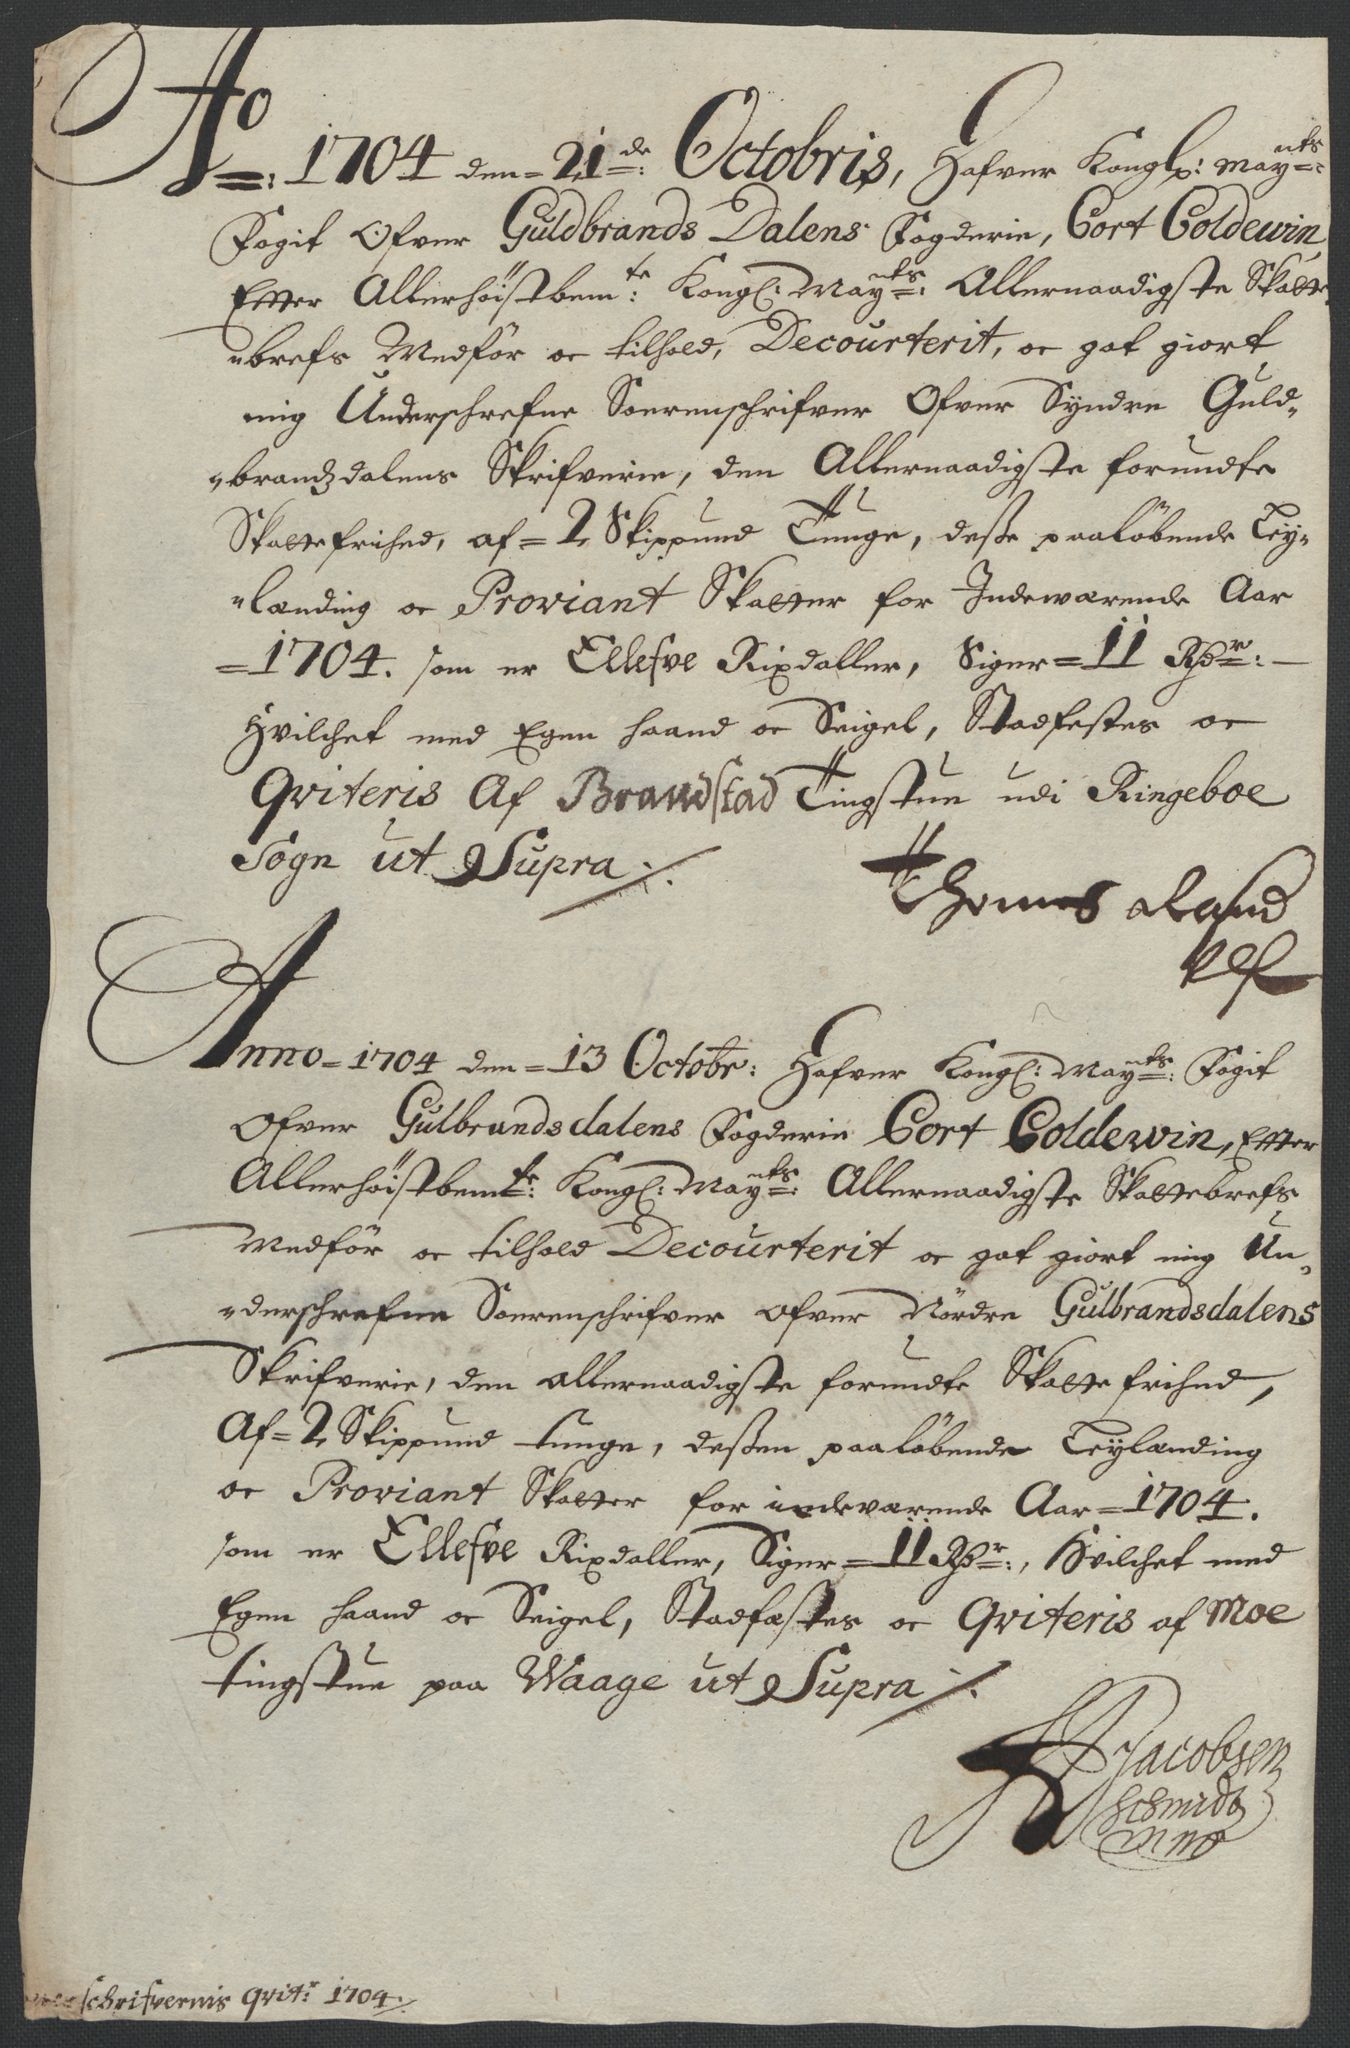 Ao
=: 1704 den = 21de: Octobris, Hafver Kongl: Mayts:
Fogit Ofver Guldbrands Dalens Fogderie, Cort Coldewin
Etter Allerhöistbemte: Kongl: Mayts: Allernaadigste Skatte
"brefs Medför oc tilhold, Decourterit, oc got giort
mig Underschrefne Sorenschrifver Ofver Syndre Guld"
"brandzdalens Skrifverie, den Allernaadigste forundte
Skattefrihed, af = 2 Skippund Tunge, desse paaløbende Ley"
"lænding oc Proviant Skatter for Indewærende Aar
= 1704. som er Ellefve Rixdaller, Siger = 11 Rdr: —
Hvilchet med Egen haand oc Seigel, Stadfestes oc
Qviteris Af Brandstad Tingstue udi Ringeboe
Sogn ut Supra ./.
Thomas

Anno = 1704 den = 13 Octobr: Hafver Kongl: Mayts: Fogit
Ofver Gulbrandsdalens Fogderie Cort Coldewin, Etter
Allerhöistbemte: Kongl: Mayts: Allernaadigste Skattebrefs
Medför oc tilhold Decourterit oc got giort mig Un"
"derschrefne Sorenschrifver ofver Nördre Gulbrandsdalens
Skrifverie, den allernaadigste forundte Skatte frihed,
Af = 2 Skippund tunge, dessen paaløbende Leylænding
oc Proviant Skatter for indeværende Aar = 1704.
som er Ellefve Rixdaller, Siger = 11 Rdr:, Hvilchet med
Egen haand oc Seigel, Stadfæstes oc Qviteris af Moe
tingstue paa Waage ut Supra ./.
Jacobsen
Schmidt
mp
schrifvernis qvitr: 1704 ./.